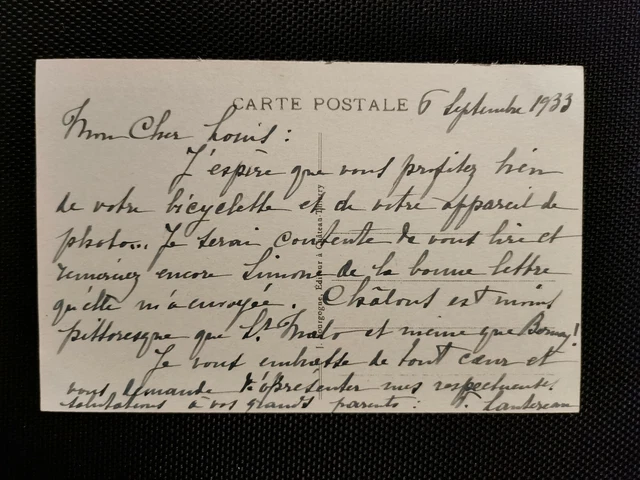 CARTE POSTALE 6 Septembre 1933
Mon Cher Louis :
J'espère que vous profitez bien
de votre bicyclette et de votre appareil de
photo... Je serai contente de vous lire et
remerciez encore Simone de la bonne lettre
qu'elle m'a envoyée. Châlons est moins
pittoresque que St Malo et même que Bernay!
Je vous embrasse de tout cœur et
vous demande de présenter mes respectueuses
salutations à vos grands parents :
Bourgogne, Editeur à Château-Thierry